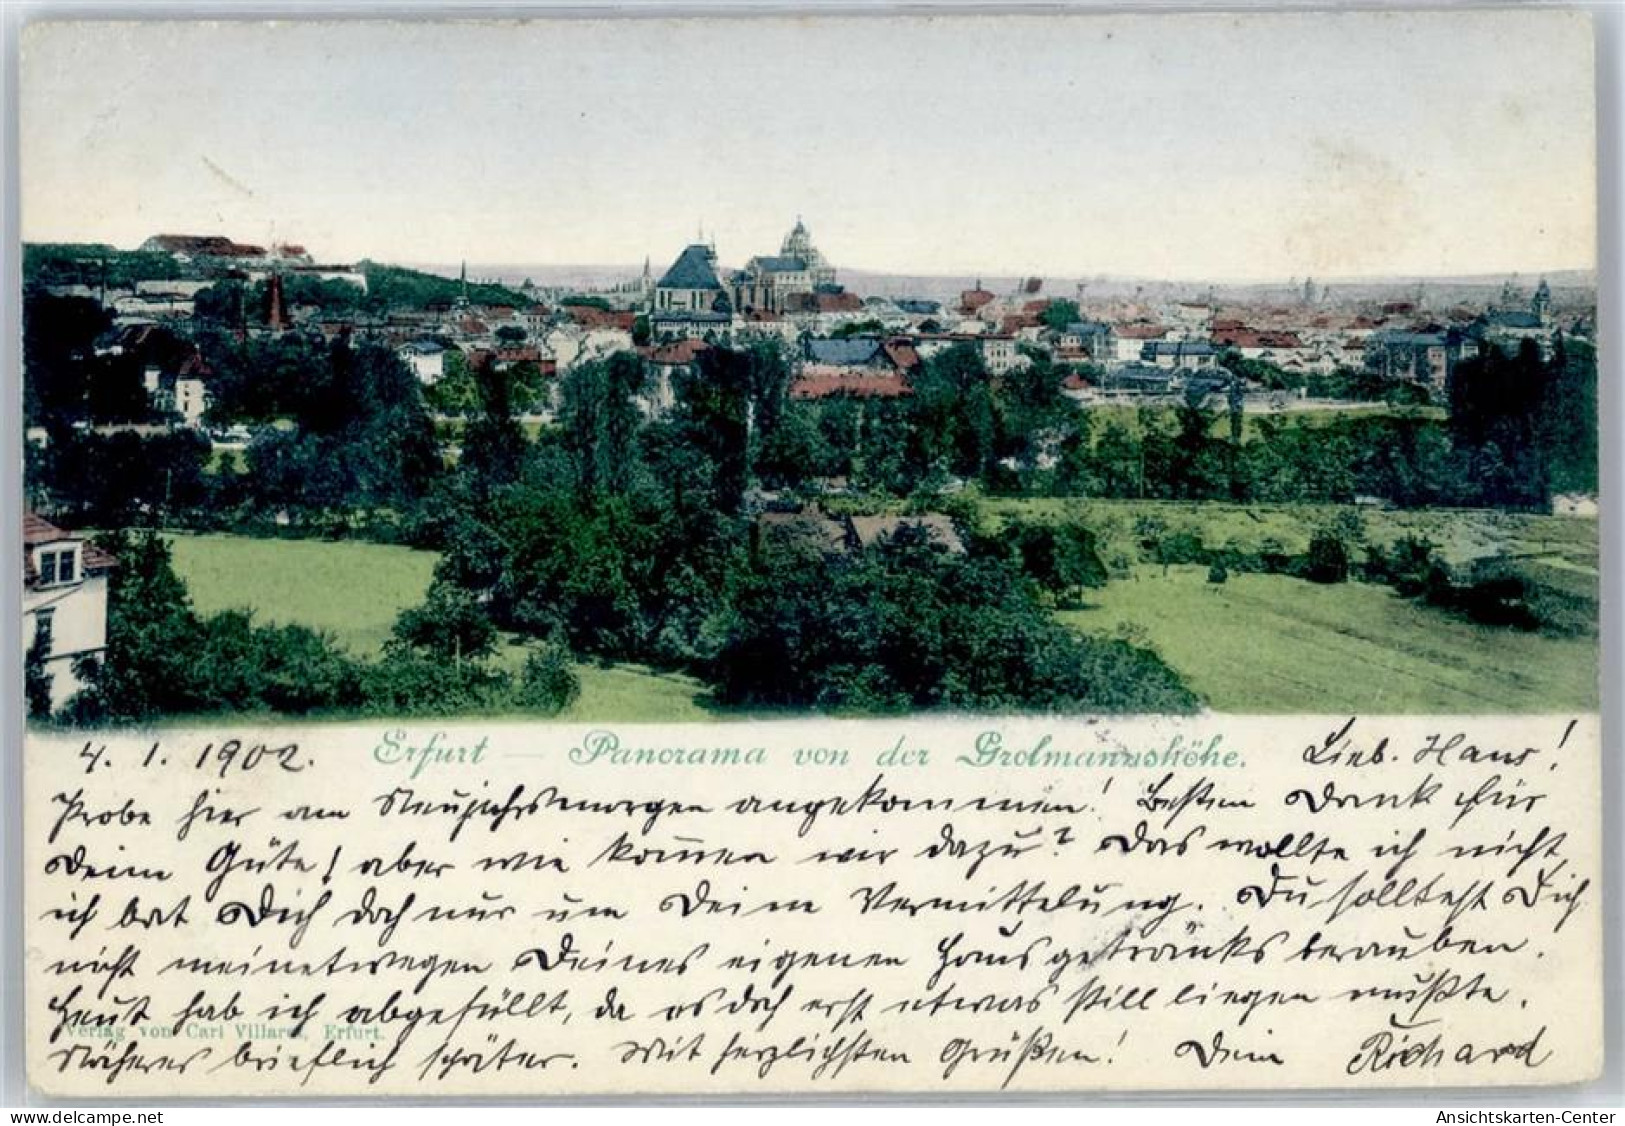 4. 1. 1902. Erfurt — Panorama von der Grolmannshöhe. Lieb. Hans!
Probe hier am Neujahrsmorgen angekommen! Besten Dank für
Deine Güte! aber wie kom̄en wir dazu? Das wollte ich nicht,
ich bat Dich doch nur um Deine Vermittelung. Du solltest Dich
nicht meinetwegen Deines eigenen Hausgetränks berauben.
Heut hab ich abgefüllt, da es doch erst etwas still liegen mußte.
Verlag von Carl Villaret, Erfurt.
Näheres brieflich später. Mit herzlichsten Grüßen! Dein Richard
delcampe.net
Ansichtskarten-Center